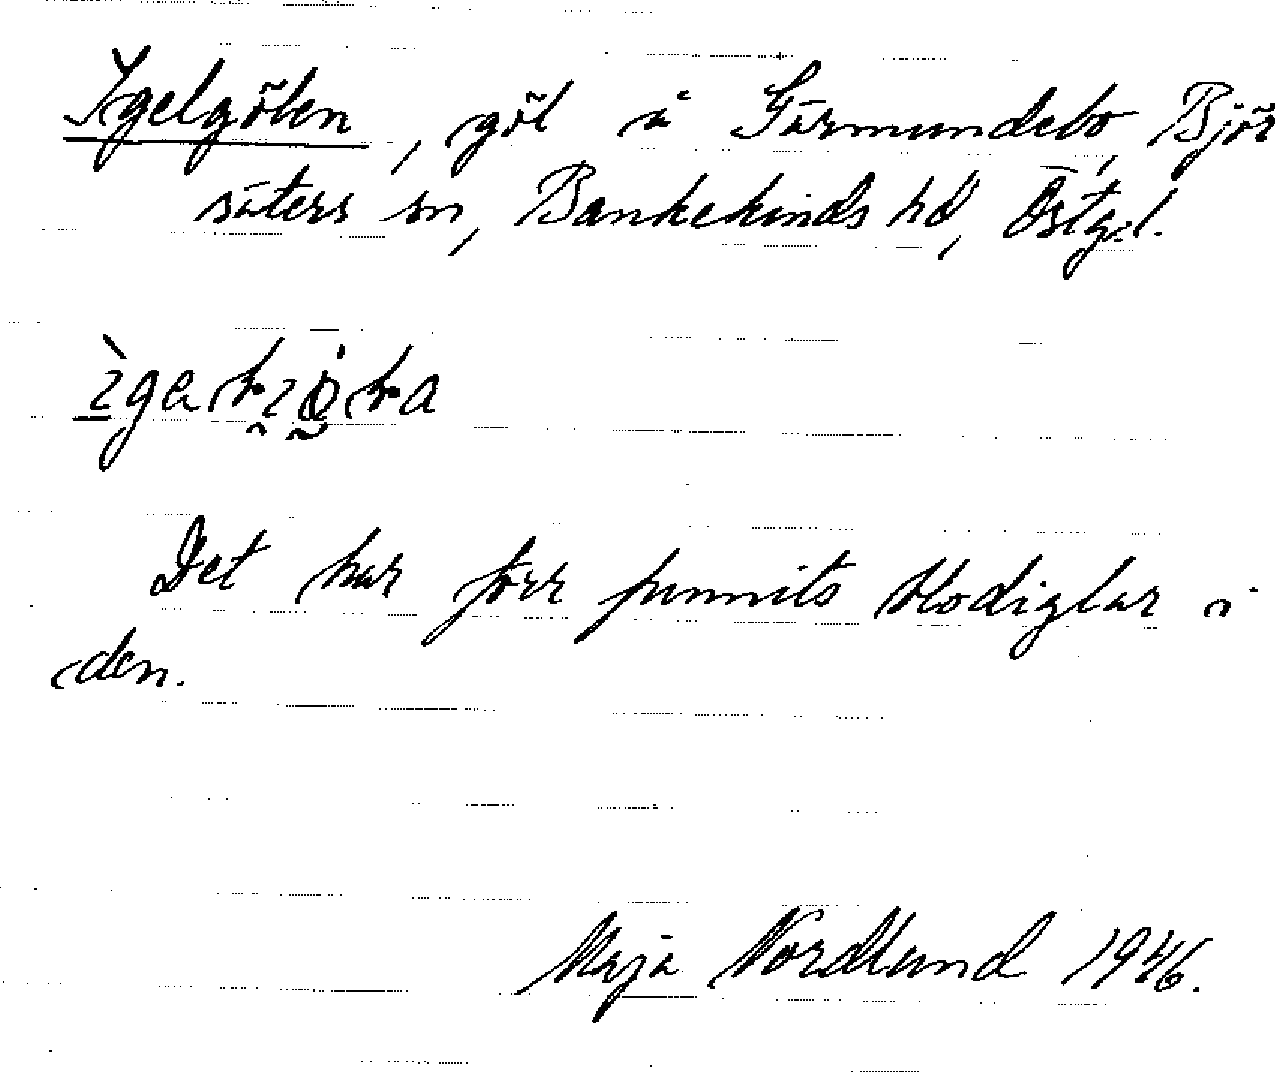 Igelgölen, göl å Gärmundebo, Björ
säters sn, Bankekinds hd, Östgl.
Det har förr funnits blodiglar i
den.
Maja Nordlund 1946.